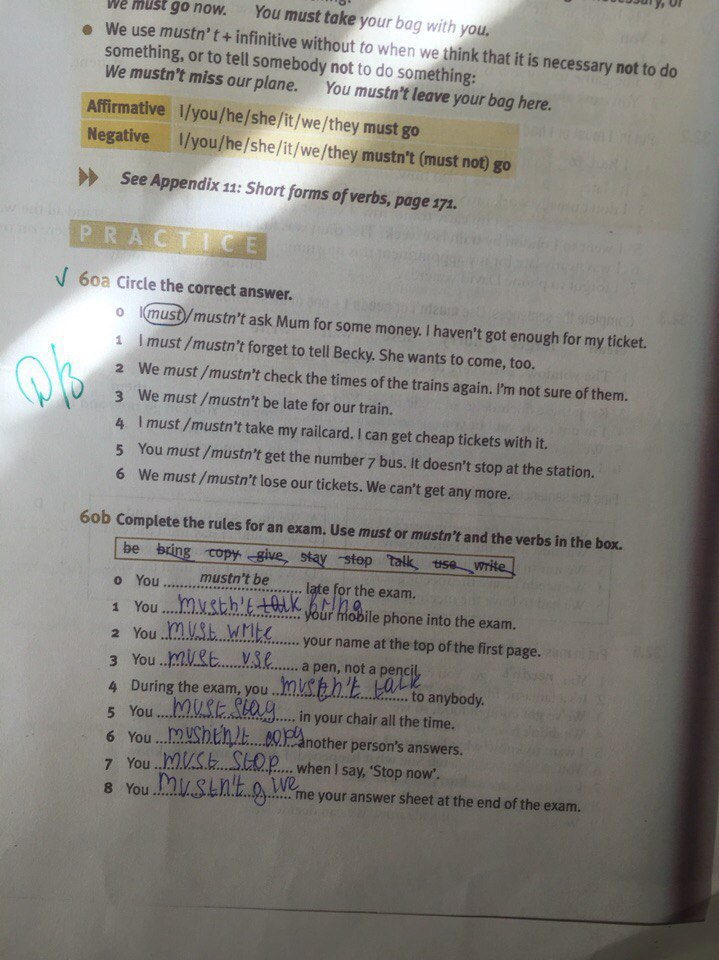 We must go now. You must take your bag with you.
• We use mustn't + infinitive without to when we think that it is necessary not to do
something, or to tell somebody not to do something:
We mustn't miss our plane. You mustn't leave your bag here.
Affirmative I/you/he/she/it/we/they must go
Negative I/you/he/she/it/we/they mustn't (must not) go
See Appendix 11: Short forms of verbs, page 171.
PRACTICE
✓ 60a Circle the correct answer.
0 I must/mustn't ask Mum for some money. I haven't got enough for my ticket.
1 I must/mustn't forget to tell Becky. She wants to come, too.
2 We must/mustn't check the times of the trains again. I'm not sure of them.
3 We must/mustn't be late for our train.
4 I must/mustn't take my railcard. I can get cheap tickets with it.
5 You must/mustn't get the number 7 bus. It doesn't stop at the station.
6 We must/mustn't lose our tickets. We can't get any more.
60b Complete the rules for an exam. Use must or mustn't and the verbs in the box.
be bring copy give stay stop talk use write
0 You mustn't be late for the exam.
1 You mustn't talk bring your mobile phone into the exam.
2 You must write your name at the top of the first page.
3 You must use a pen, not a pencil.
4 During the exam, you mustn't talk to anybody.
5 You must stay in your chair all the time.
6 You mustn't copy another person's answers.
7 You must stop when I say, 'Stop now'.
8 You mustn't give me your answer sheet at the end of the exam.